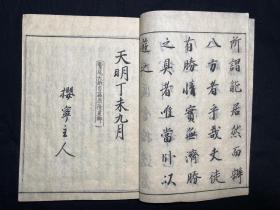 所謂能居然而辨
八方者乎哉夫徒
有勝情實無濟勝
之具者唯當卧以
遊之
天明丁未九月
攖寧主人